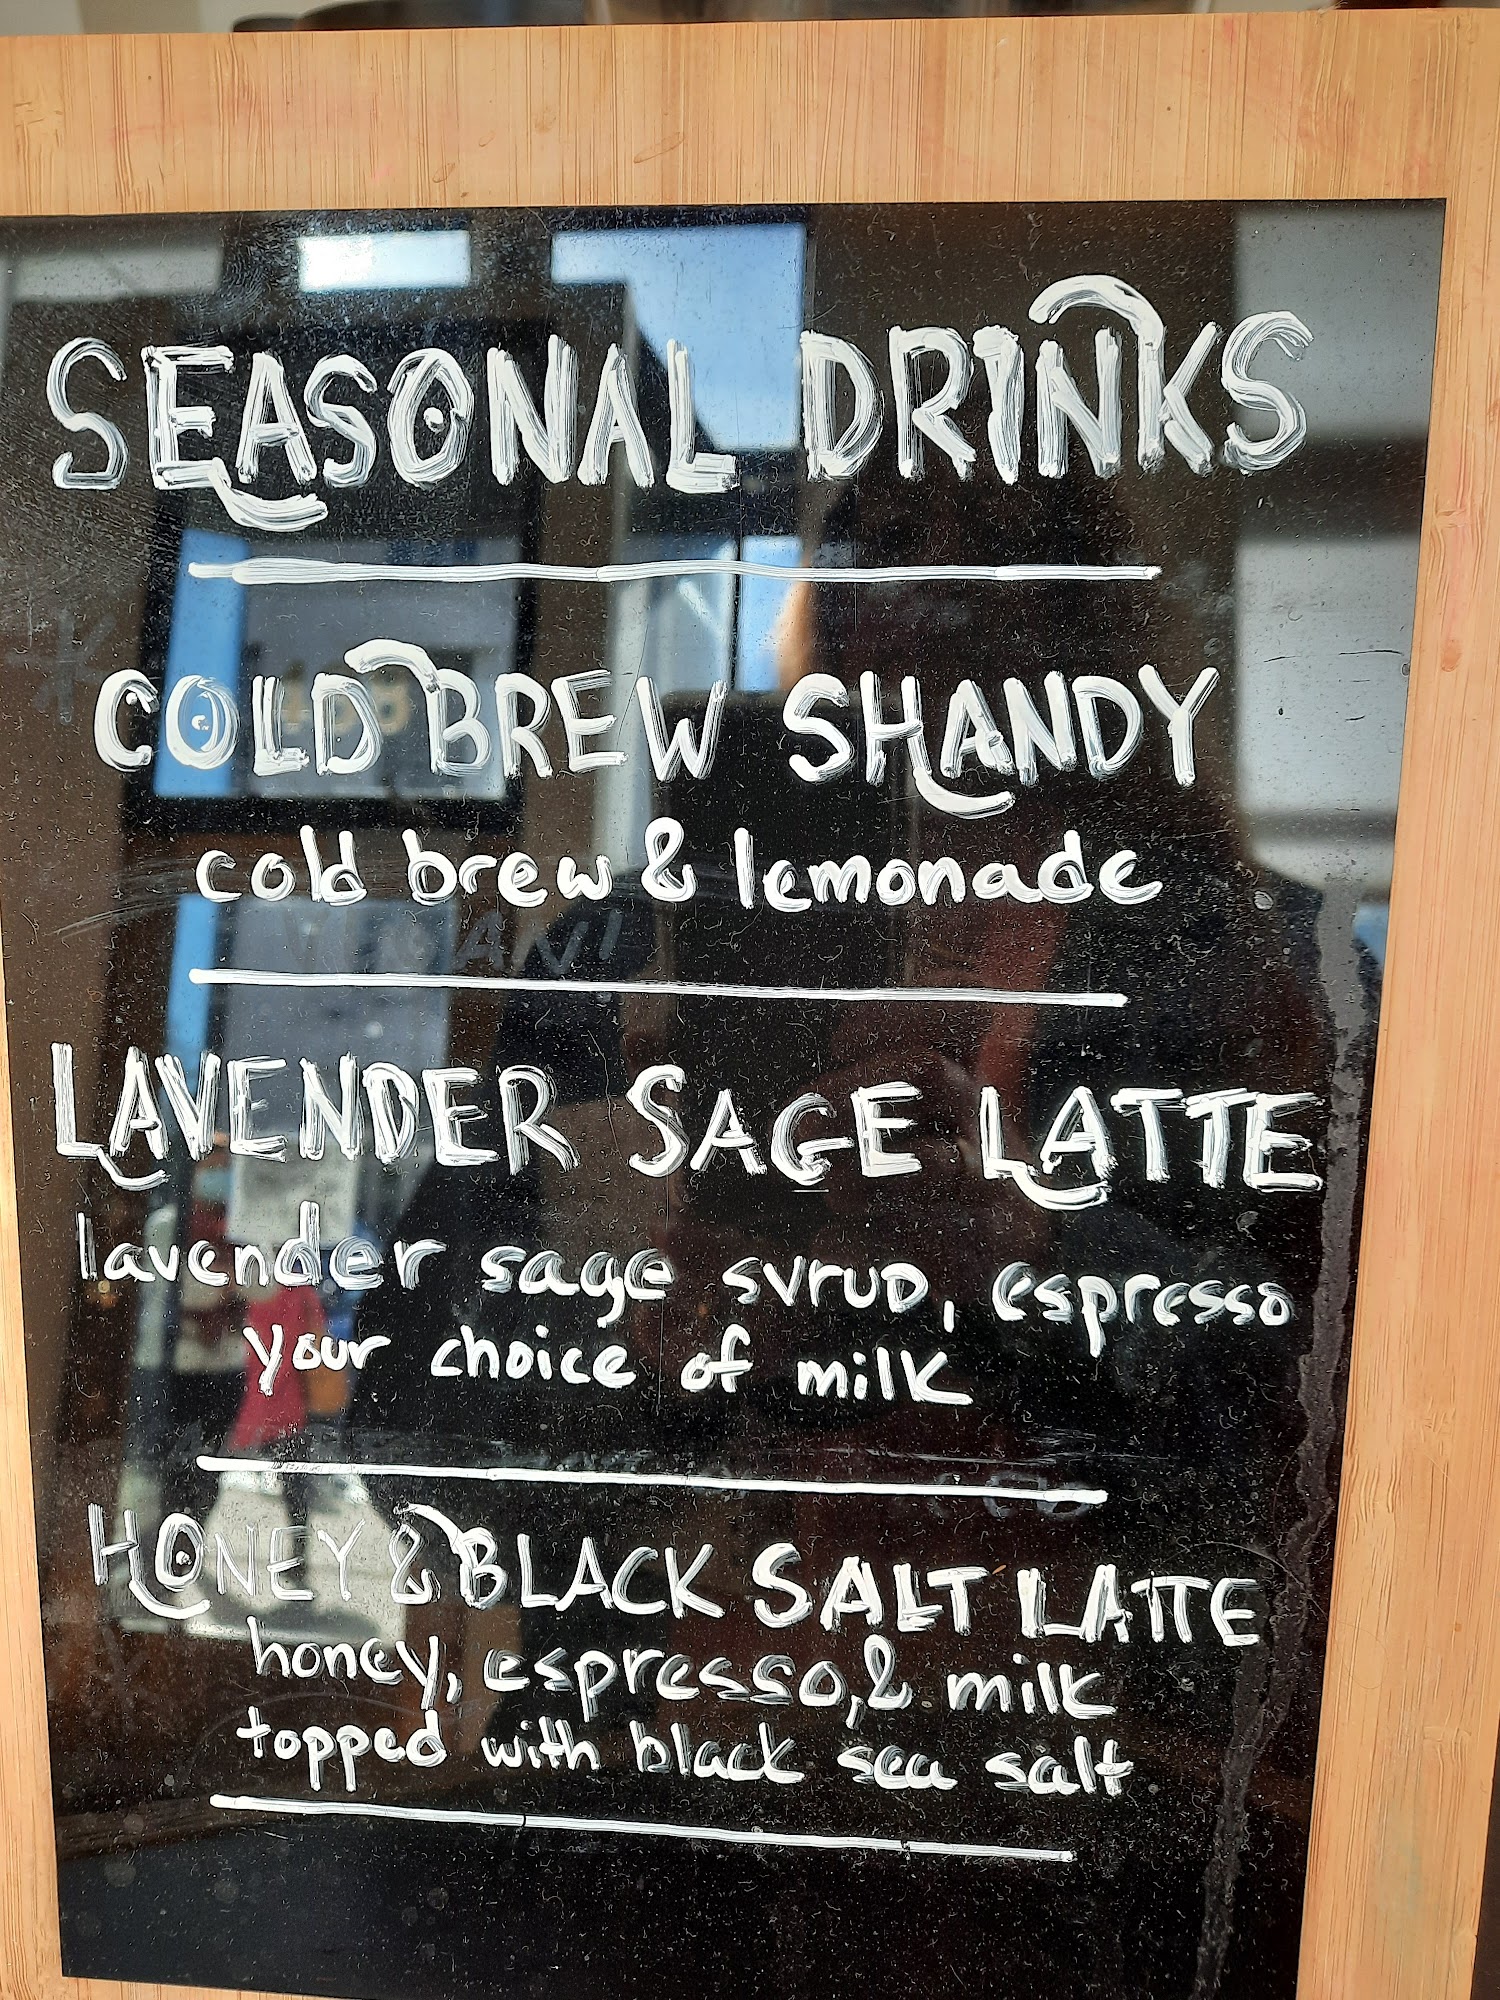 SEASONAL DRINKS
COLD BREW SHANDY
cold brew & lemonade
LAVENDER SAGE LATTE
lavender sage syrup, espresso
your choice of milk
HONEY & BLACK SALT LATTE
honey, espresso, & milk
topped with black sea salt